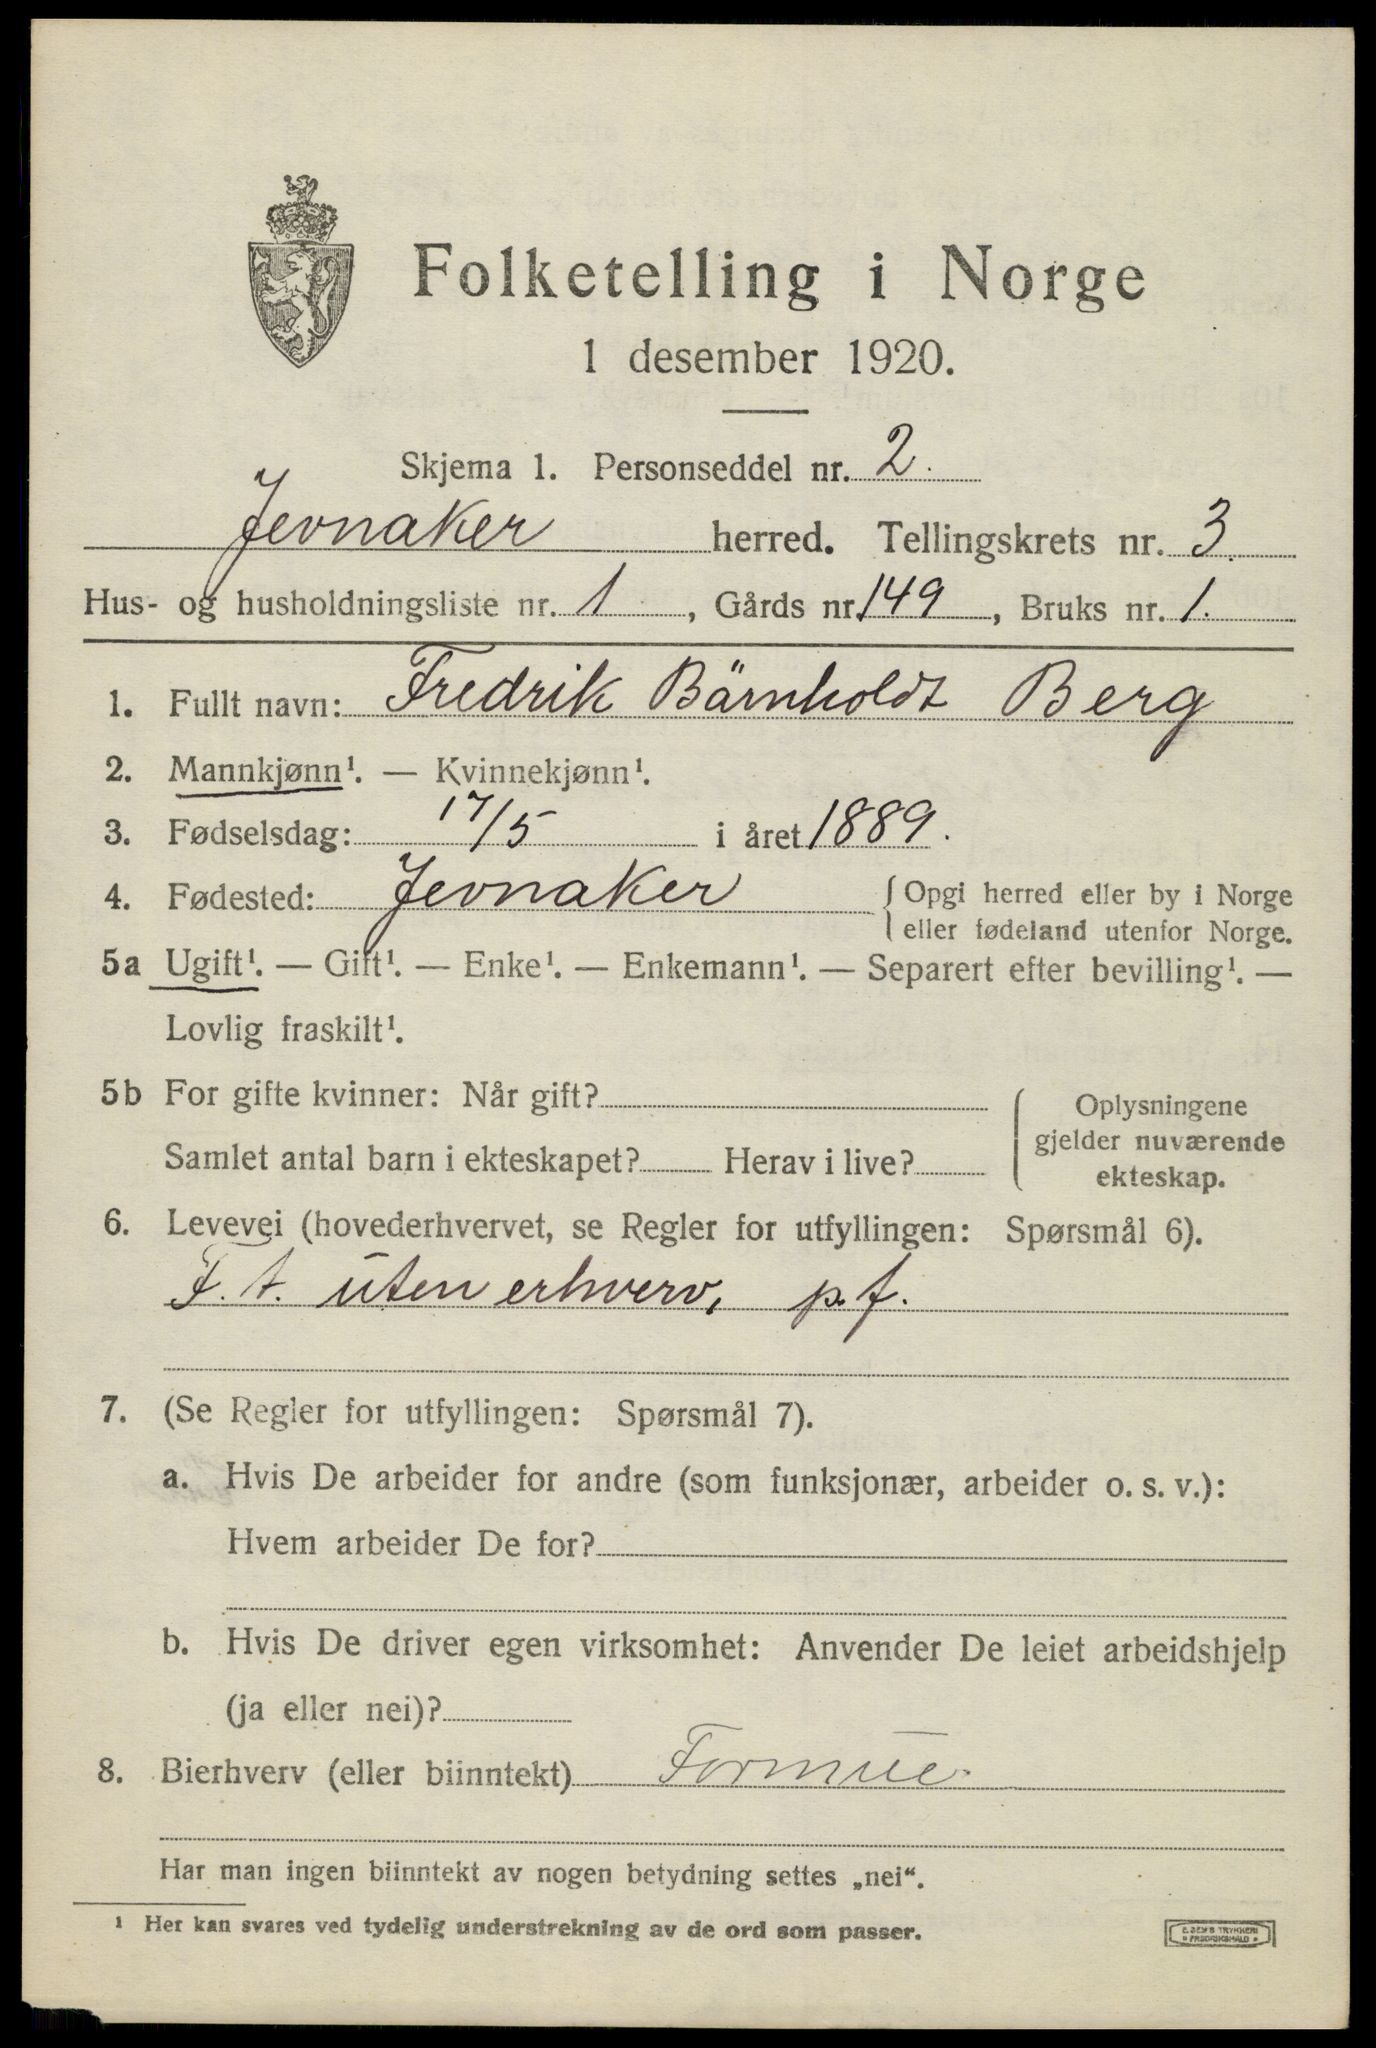 Folketelling i Norge
1 desember 1920.
Skjema 1. Personseddel nr. 2.
Jevnaker herred. Tellingskrets nr. 3.
Hus- og husholdningsliste nr. 1, Gårds nr. 149, Bruks nr. 1.
1. Fullt navn: Fredrik Bärnholdt Berg
2. Mannkjønn¹. — Kvinnekjønn¹.
3. Fødselsdag: 17/5 i året 1889.
4. Fødested: Jevnaker { Opgi herred eller by i Norge
eller fødeland utenfor Norge.
5a Ugift¹. — Gift¹. — Enke¹. — Enkemann¹. — Separert efter bevilling¹. —
Lovlig fraskilt¹.
5b For gifte kvinner: Når gift?
Samlet antal barn i ekteskapet? Herav i live?
Oplysningene
gjelder nuværende
ekteskap.
6. Levevei (hovederhvervet, se Regler for utfyllingen: Spørsmål 6).
F. t. uten erhverv, p. f.
7. (Se Regler for utfyllingen: Spørsmål 7).
a. Hvis De arbeider for andre (som funksjonær, arbeider o. s. v.):
Hvem arbeider De for?
b. Hvis De driver egen virksomhet: Anvender De leiet arbeidshjelp
(ja eller nei)?
8. Bierhverv (eller biinntekt) Formue.
Har man ingen biinntekt av nogen betydning settes „nei“.
¹ Her kan svares ved tydelig understrekning av de ord som passer.
E. SEM'S TRYKKERI
FREDRIKSHALD